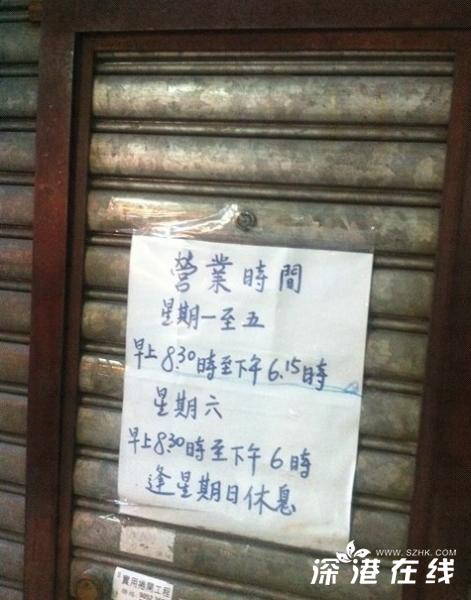 營業時間
星期一至五
早上8.30時至下午6.15時
星期六
早上8.30時至下午6時
逢星期日休息
實用捲閘工程
WWW.SZHK.COM
深港在线